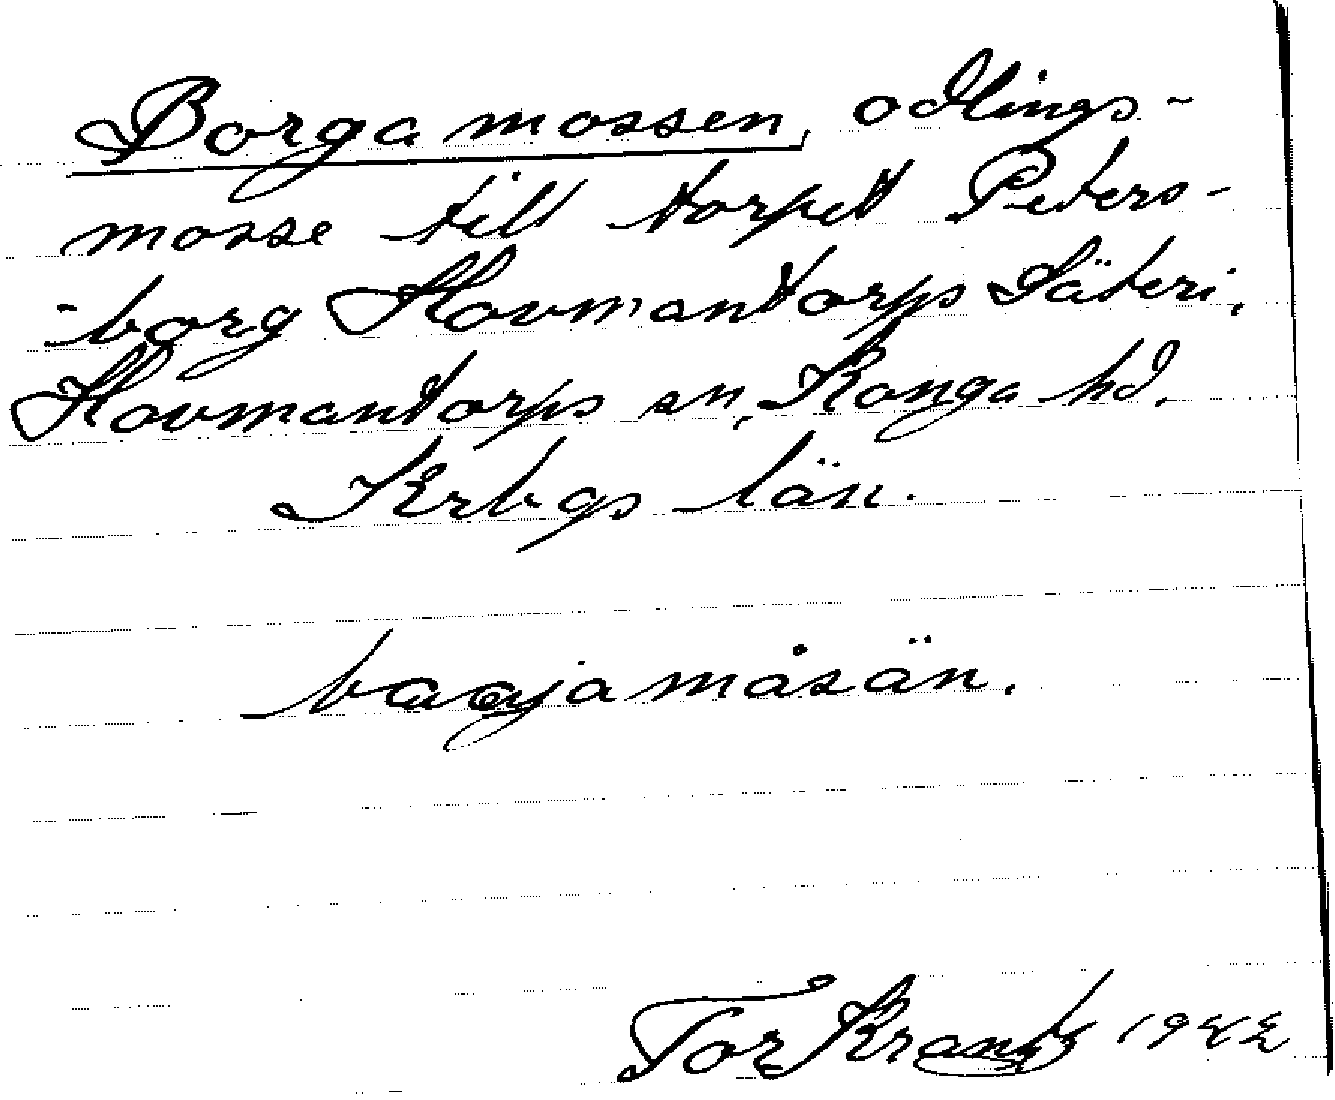 Borgamossen, odlings-
mosse till torpet Peters-
-borg Hovmantorps Säteri,
Hovmantorps sn, Konga hd.
Krbgs län.
baarjamåsän.
Tor Krantz 1922